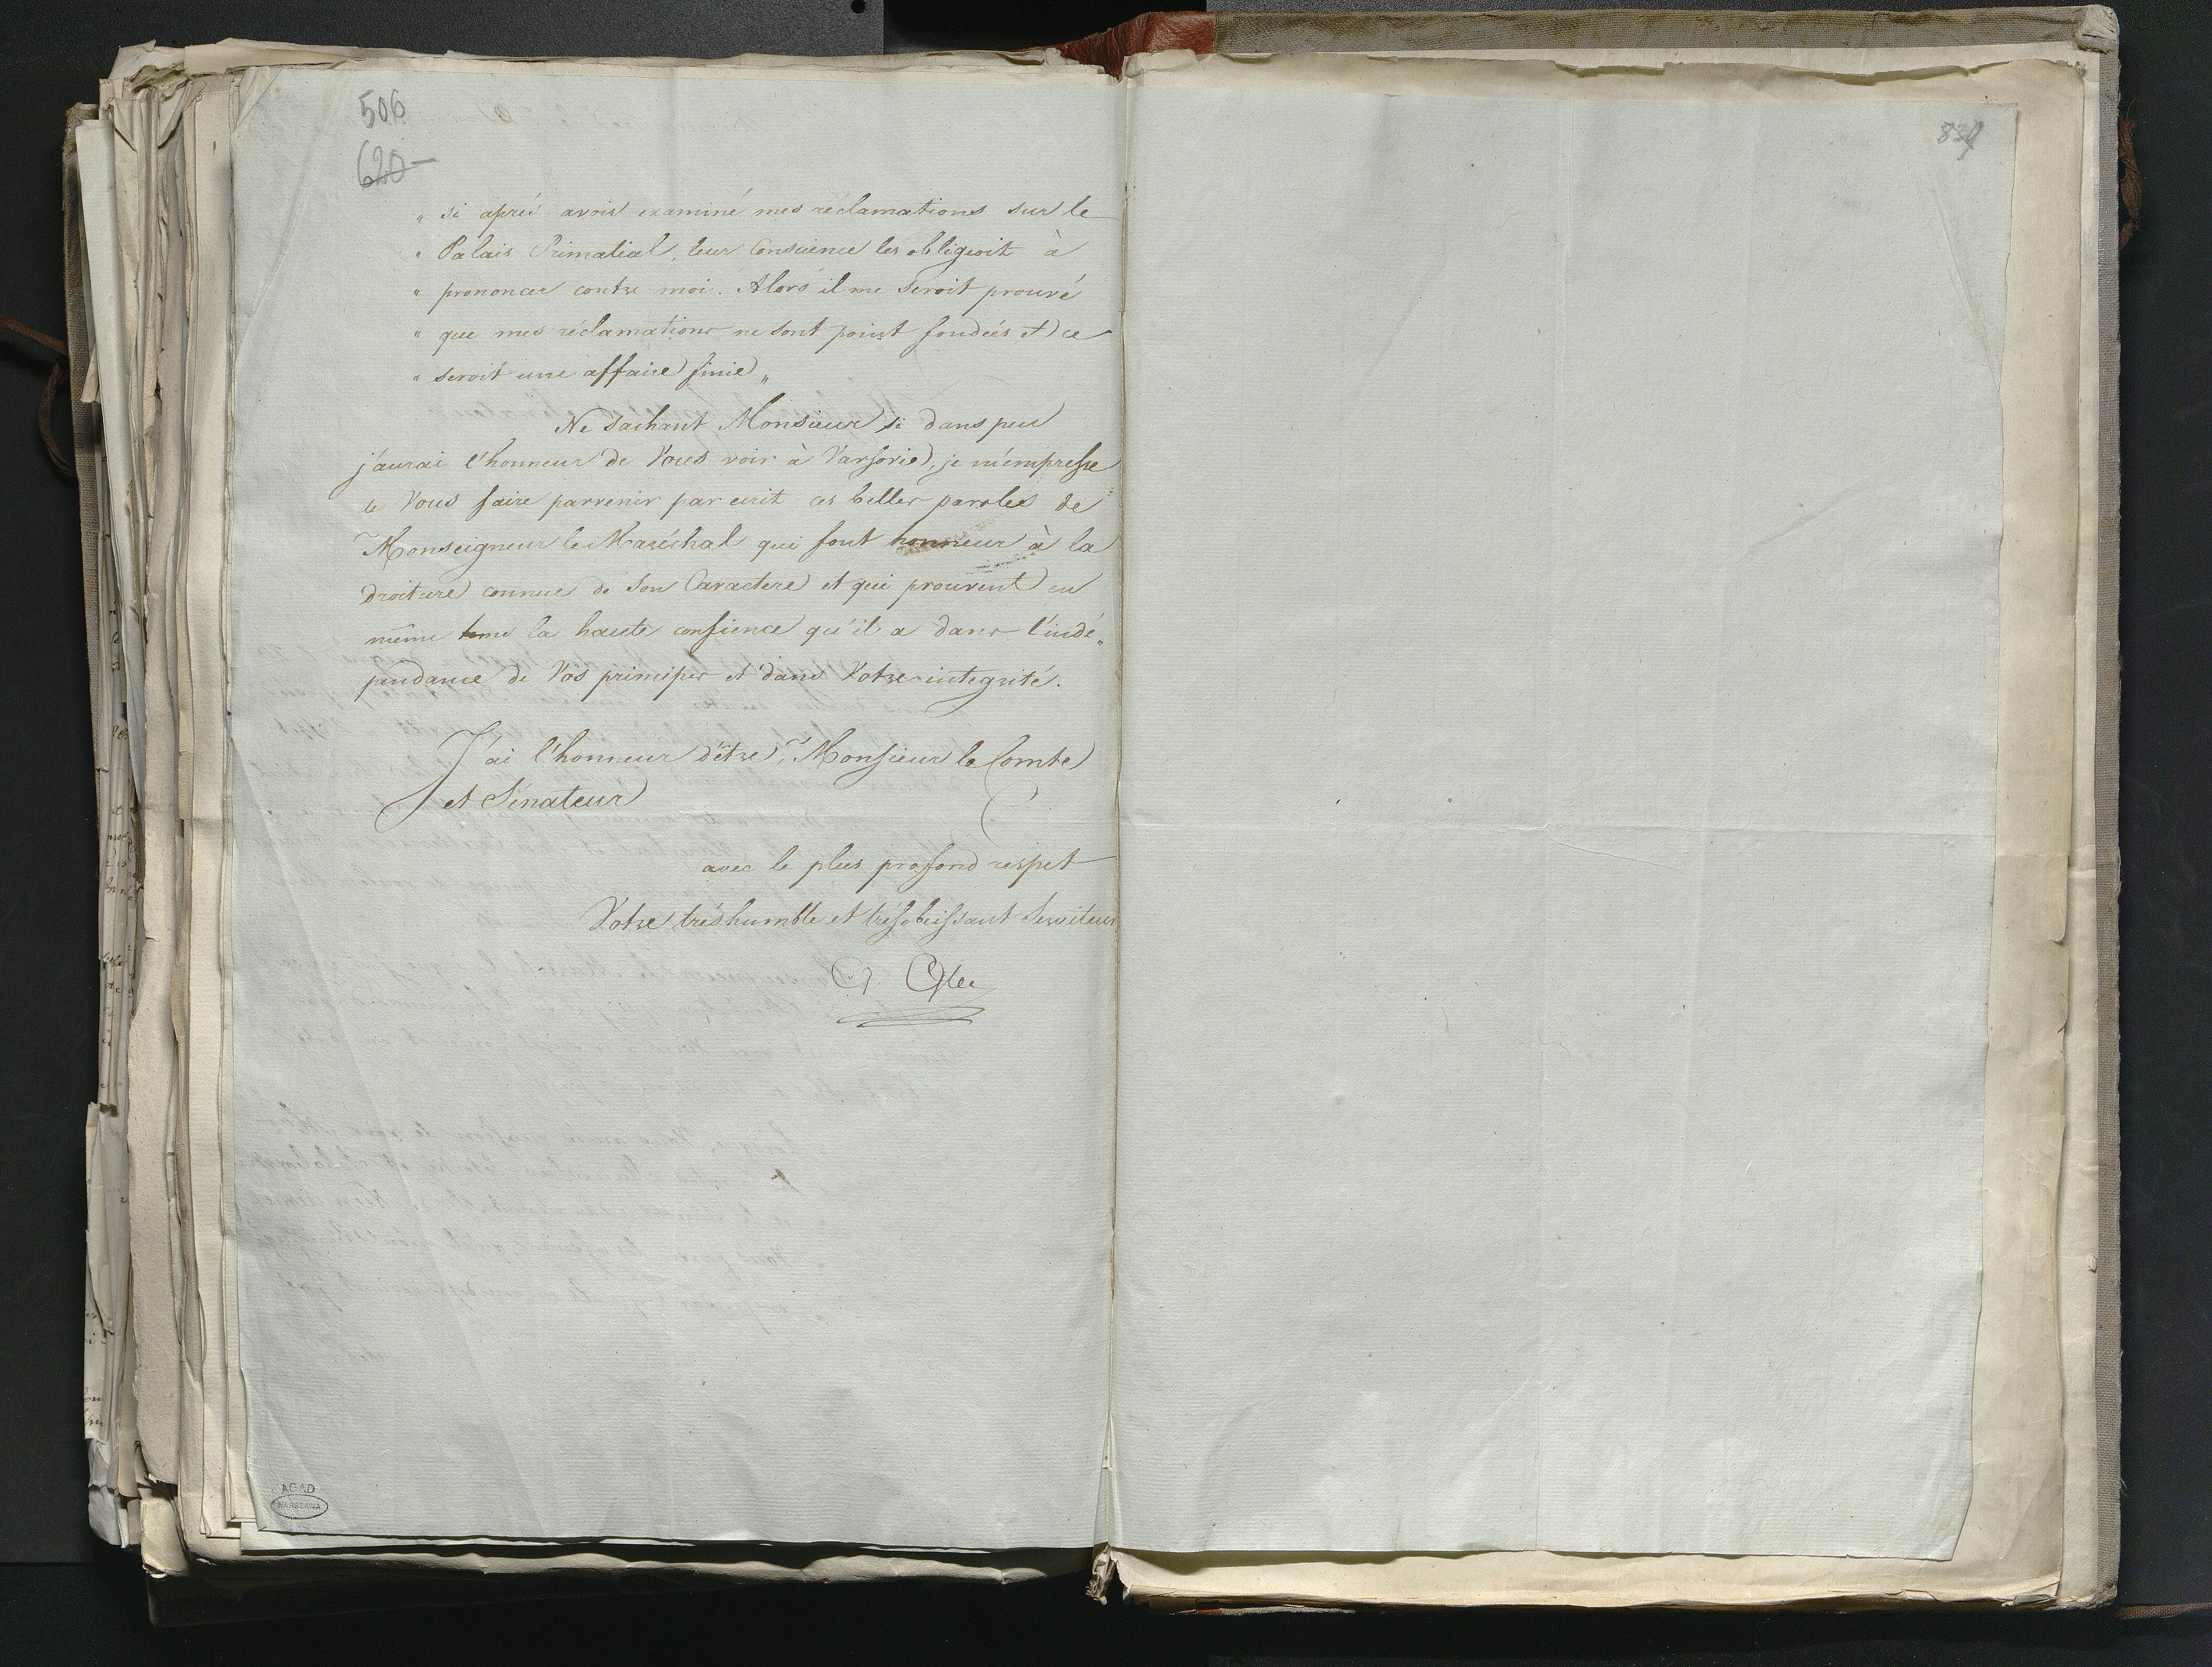 506
620
„ si aprés avoir examiné mes réclamations sur le
„ Palais Primatial, leur Conscience les obligeoit à
„ prononcer contre moi. Alors il me seroit prouvé
„ que mes réclamations ne sont point fondées et ce
„ seroit une affaire finie „
Ne Sachant Monsieur si dans peu
j'aurai l'honneur de Vous voir à Varsovie, je m'empresse
de Vous faire parvenir par ecrit ces belles paroles de
Monseigneur le Maréchal qui font honneur à la
droiture connue de Son Caractere et qui prouvent en
même tems la haute confience qu'il a dans l'indé„
pendance de Vos principes et dans Votre integrité.
J'ai l'honneur d'être, Monsieur le Comte
et Sénateur
avec le plus profond respet
Votre très humble et très obeissant Serviteur
AGAD
WARSZAWA